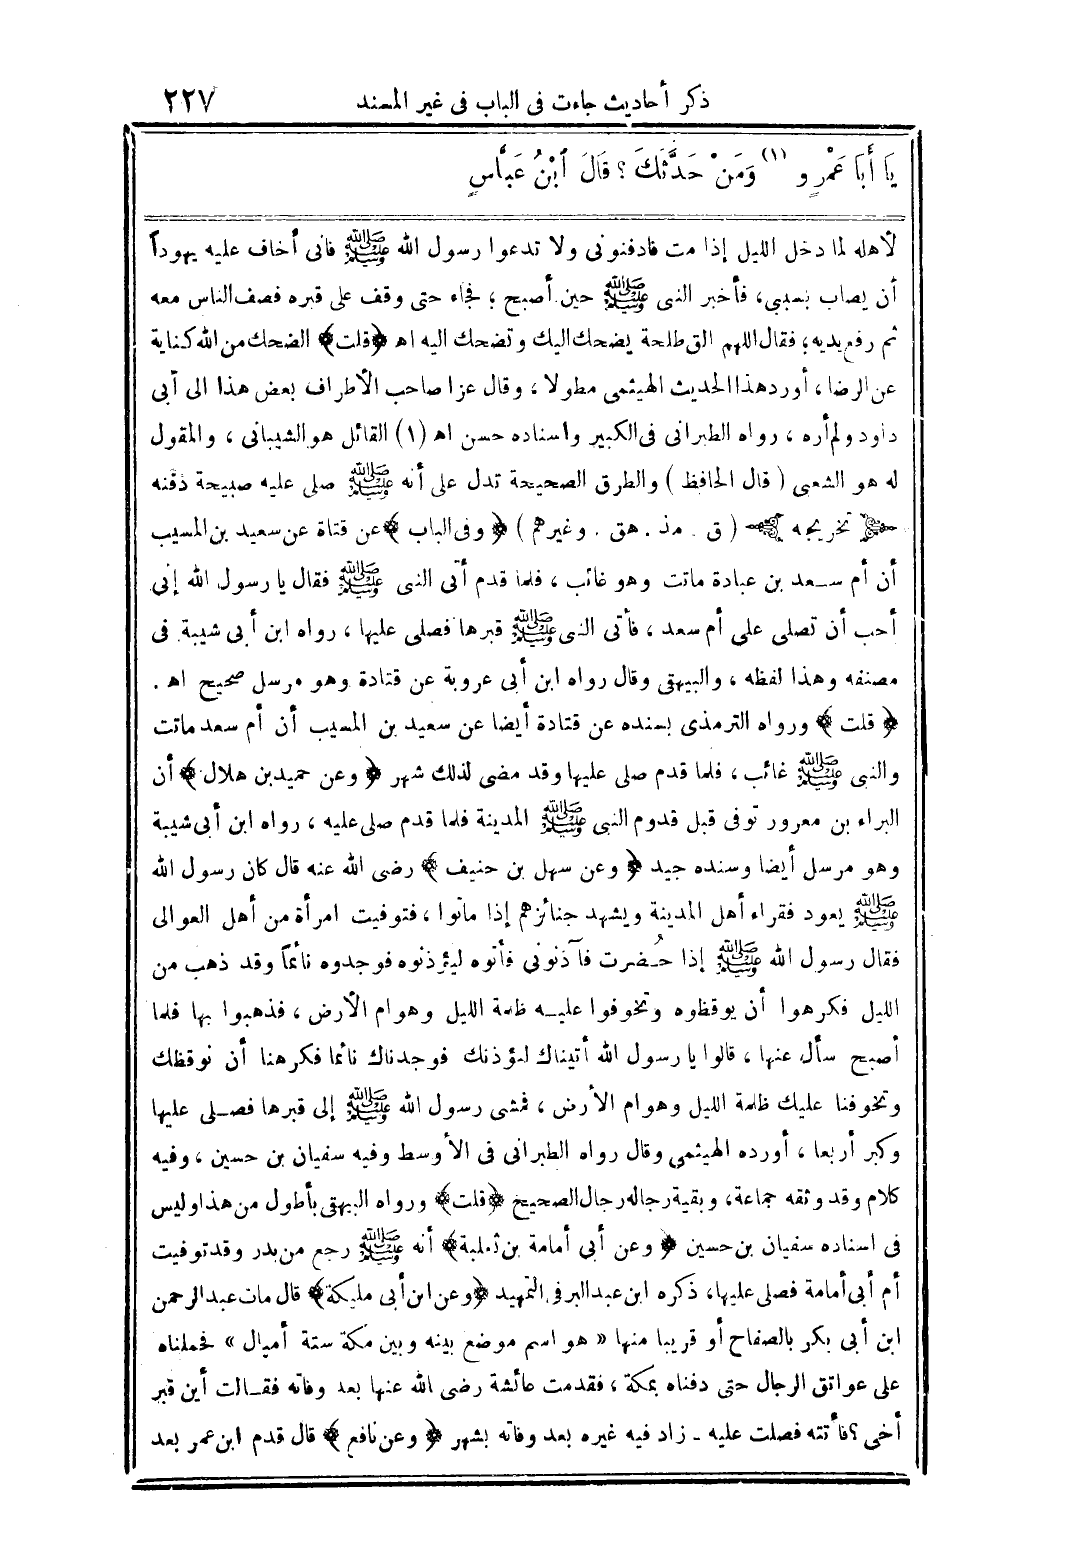 ذكر أحاديث جاءت فى الباب فى غير المسند ٢٢٧
يَا أَبَا عَمْرٍو (١) وَمَنْ حَدَّثَكَ ؟ قَالَ ٱبْنُ عَبَّاسٍ
لأهله لما دخل الليل إذا مت فادفنونى ولا تدعوا رسول الله ﷺ فانى أخاف عليه يهوداً
أن يصاب بسببى، فأخبر النبى ﷺ حين أصبح ؛ فجاء حتى وقف على قبره فصف الناس معه
ثم رفع يديه؛ فقال اللهم الق طلحة يضحك اليك وتضحك اليه اهـ ﴿قلت﴾ الضحك من الله كناية
عن الرضا، أورد هذا الحديث الهيثمى مطولا ، وقال عزا صاحب الأطراف بعض هذا الى أبى
داود ولم أره ، رواه الطبرانى فى الكبير واسناده حسن اهـ (١) القائل هو الشيبانى ، والمقول
له هو الشعبى ( قال الحافظ ) والطرق الصحيحة تدل على أنه ﷺ صلى عليه صبيحة دفنه
تخريجه ( ق . مذ . هق . وغيرهم ) ﴿ وفى الباب ﴾ عن قتاة عن سعيد بن المسيب
أن أم سعد بن عبادة ماتت وهو غائب ، فلما قدم أتى النبى ﷺ فقال يا رسول الله إنى
أحب أن تصلى على أم سعد ، فأتى النبى ﷺ قبرها فصلى عليها ، رواه ابن أبى شيبة فى
مصنفه وهذا لفظه ، والبيهقى وقال رواه ابن أبى عروبة عن قتادة وهو مرسل صحيح اهـ .
﴿ قلت ﴾ ورواه الترمذى بسنده عن قتادة أيضا عن سعيد بن المسيب أن أم سعد ماتت
والنبى ﷺ غائب ، فلما قدم صلى عليها وقد مضى لذلك شهر ﴿ وعن حميد بن هلال ﴾ أن
البراء بن معرور توفى قبل قدوم النبى ﷺ المدينة فلما قدم صلى عليه ، رواه ابن أبى شيبة
وهو مرسل أيضا وسنده جيد ﴿ وعن سهل بن حنيف ﴾ رضى الله عنه قال كان رسول الله
ﷺ يعود فقراء أهل المدينة ويشهد جنائزهم إذا ماتوا ، فتوفيت امرأة من أهل العوالى
فقال رسول الله ﷺ إذا حُضرت فآذنونى فأتوه ليؤذنوه فوجدوه نائماً وقد ذهب من
الليل فكرهوا أن يوقظوه وتخوفوا عليه ظلمة الليل وهوام الأرض ، فذهبوا بها فلما
أصبح سأل عنها ، قالوا يا رسول الله أتيناك لنؤذنك فوجدناك نائما فكرهنا أن نوقظك
وتخوفنا عليك ظلمة الليل وهوام الأرض ، فمشى رسول الله ﷺ إلى قبرها فصلى عليها
وكبر أربعا ، أورده الهيثمى وقال رواه الطبرانى فى الأوسط وفيه سفيان بن حسين ، وفيه
كلام وقد وثقه جماعة، وبقية رجاله رجال الصحيح ﴿قلت﴾ ورواه البيهقى بأطول من هذا وليس
فى اسناده سفيان بن حسين ﴿ وعن أبى أمامة بن ثعلبة ﴾ أنه ﷺ رجع من بدر وقد توفيت
أم أبى أمامة فصلى عليها، ذكره ابن عبد البر فى التمهيد ﴿وعن ابن أبى مليكة﴾ قال مات عبد الرحمن
ابن أبى بكر بالصفاح أو قريبا منها « هو اسم موضع بينه وبين مكة ستة أميال » فحملناه
على عواتق الرجال حتى دفناه بمكة ، فقدمت عائشة رضى الله عنها بعد وفاته فقالت أين قبر
أخى ؟ فأتته فصلت عليه ـ زاد فيه غيره بعد وفاته بشهر ﴿ وعن نافع ﴾ قال قدم ابن عمر بعد